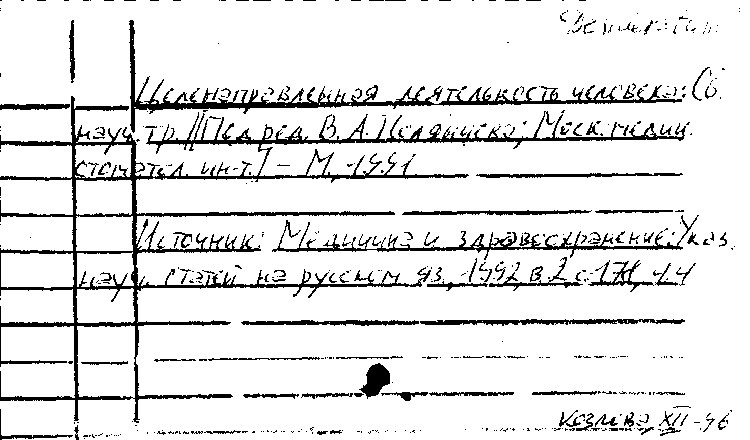 Desideratum
Целенаправленная деятельность человека: Сб.
науч. тр. // Под ред. В. А. Полянцева; Моск. медиц.
стоматол. ин-т.] - М., 1991
Источник: Медицина и здравоохранение: Указ.
науч. статей на русском яз., 1992, в. 2, с. 171, ч. 4
Козлова, XII-96